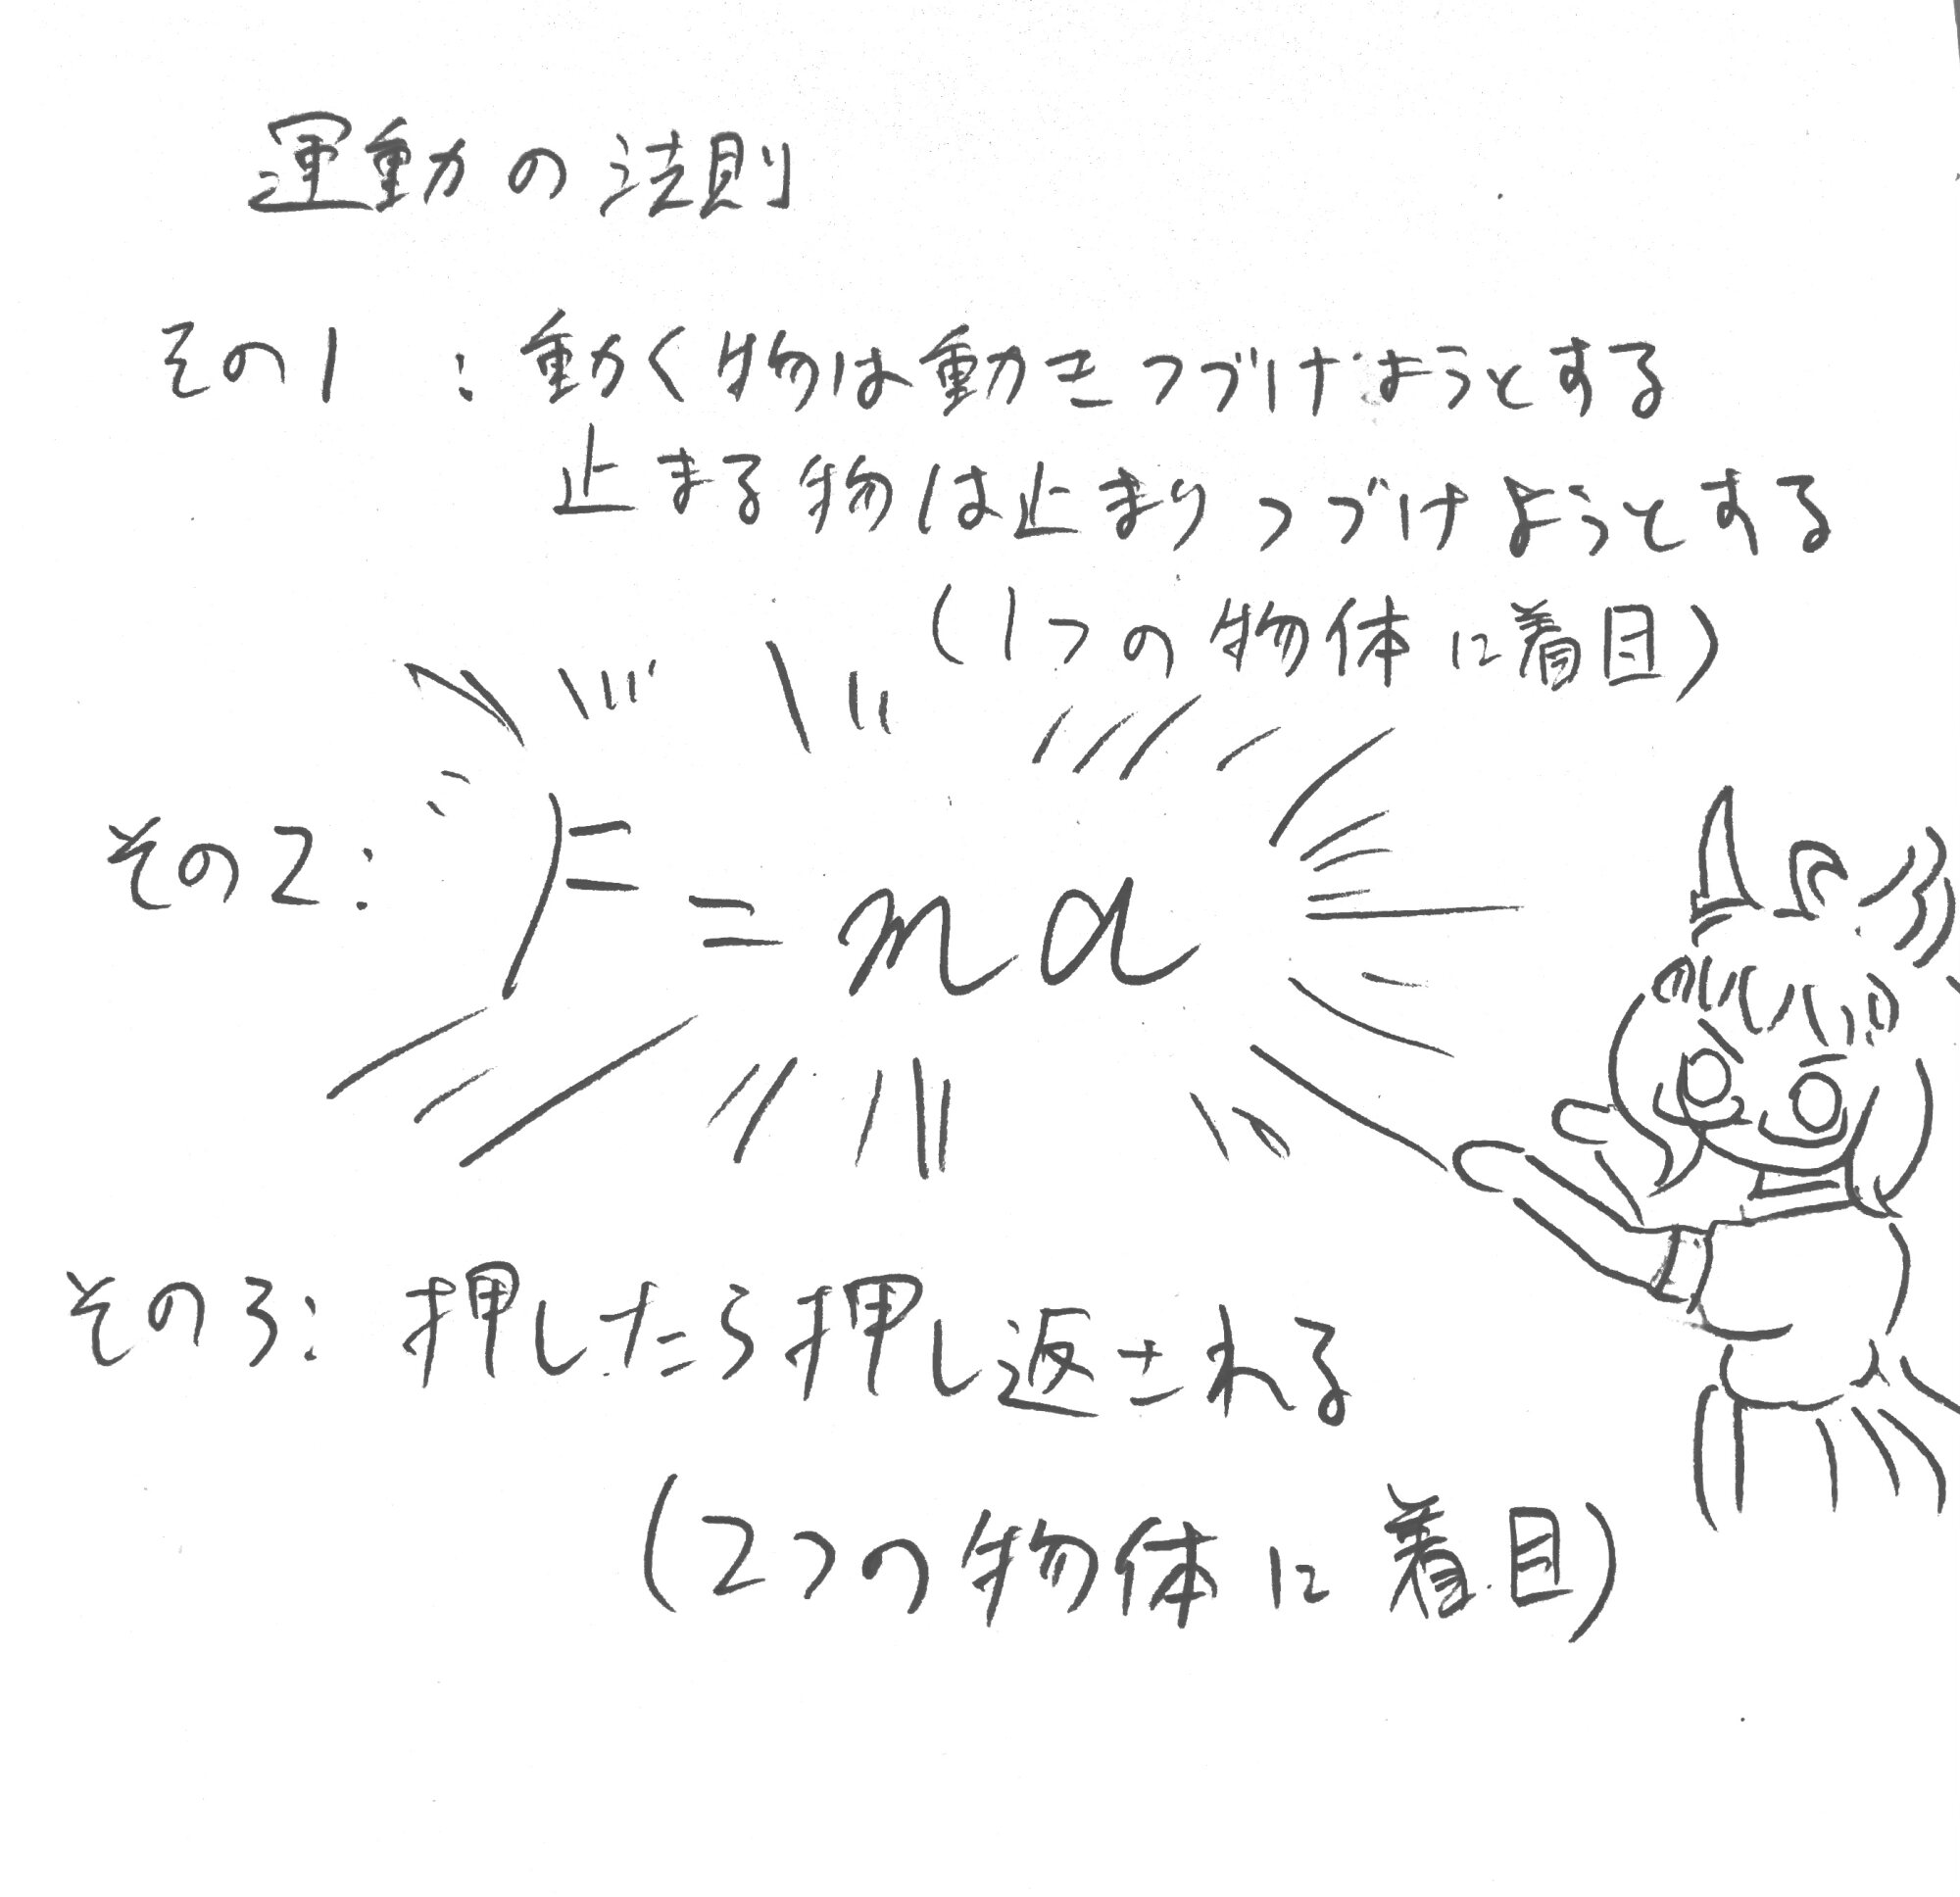 運動の法則
その1 : 動く物は動きつづけようとする
止まる物は止まりつづけようとする
(1つの物体に着目)
その2: F = ma
その3: 押したら押し返される
(2つの物体に着目)